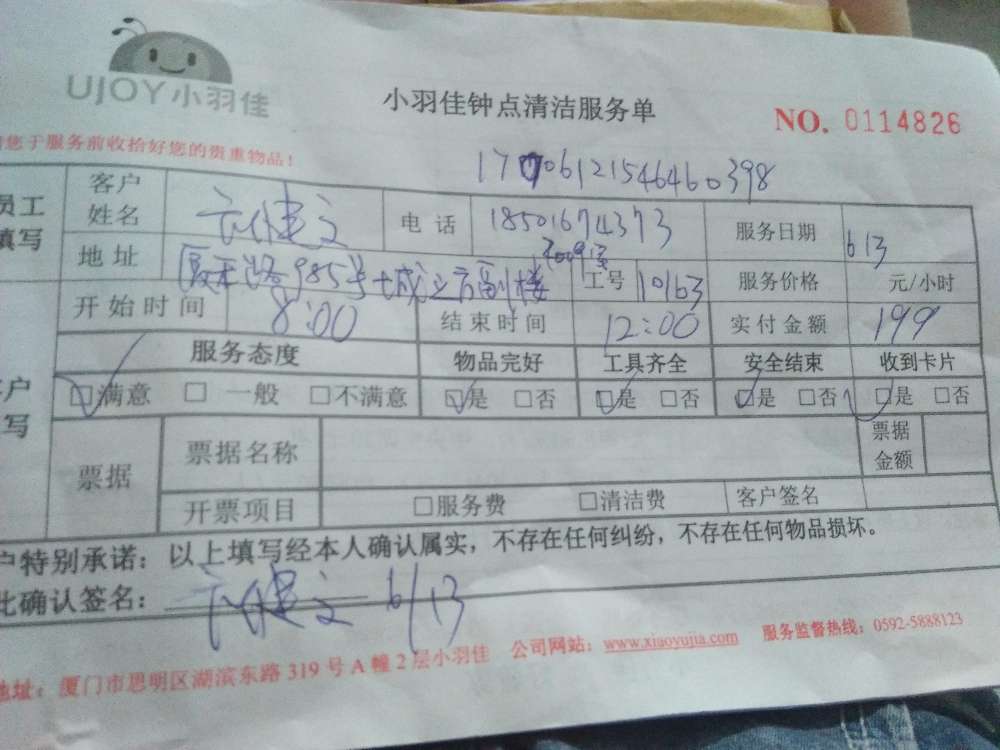 UJOY小羽佳
小羽佳钟点清洁服务单
NO. 0114826
您于服务前收拾好您的贵重物品！
170612154646 0398
员工填写 客户姓名 健文 电话 18501674373 服务日期 6.13
地址 厦禾路985号 城立方副楼 工号 10163 服务价格 元/小时
开始时间 8:00 结束时间 12:00 实付金额 199
服务态度 物品完好 工具齐全 安全结束 收到卡片
户写 □满意 □一般 □不满意 □是 □否 □是 □否 □是 □否 □是 □否
票据 票据名称 票据金额
开票项目 □服务费 □清洁费 客户签名
户特别承诺：以上填写经本人确认属实，不存在任何纠纷，不存在任何物品损坏。
此确认签名： 健文 6/13
地址：厦门市思明区湖滨东路319号A幢2层小羽佳 公司网站：www.xiaoyujia.com 服务监督热线：0592-5888123